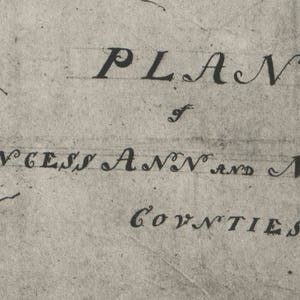 PLAN
of
NCESS ANN AND N
COVNTIES